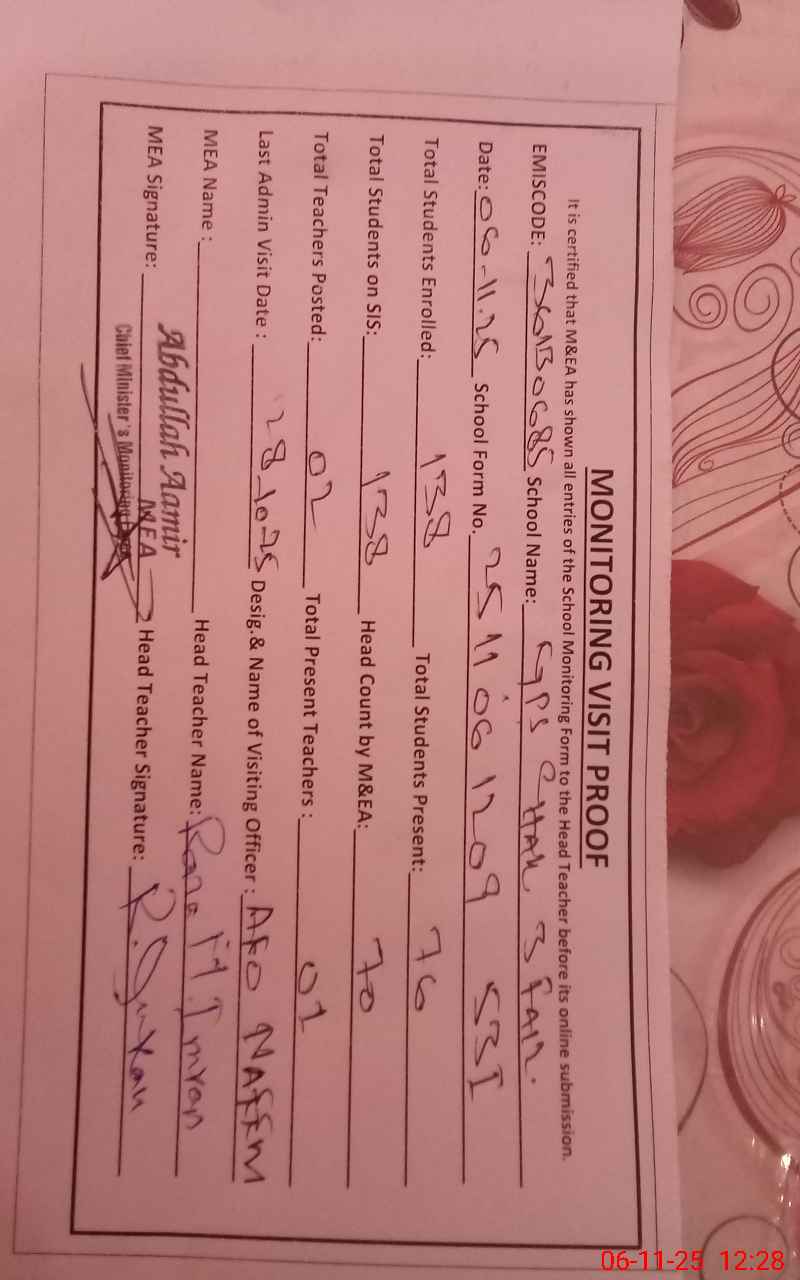 MONITORING VISIT PROOF
It is certified that M&EA has shown all entries of the School Monitoring Form to the Head Teacher before its online submission.
EMISCODE: 36130685 School Name: GPS CHAK 3 Faiz.
Date: 06-11.25 School Form No. 2511061209 SBI
Total Students Enrolled: 138 Total Students Present: 76
Total Students on SIS: 138 Head Count by M&EA: 70
Total Teachers Posted: 02 Total Present Teachers : 01
Last Admin Visit Date : 28-10-25 Desig.& Name of Visiting Officer : AEO NAEEM
MEA Name : Abdullah Aamir Head Teacher Name: Rana M. Imran
MEA Signature: MEA Head Teacher Signature: R.
Chief Minister's Monitoring
06-11-25 12:28